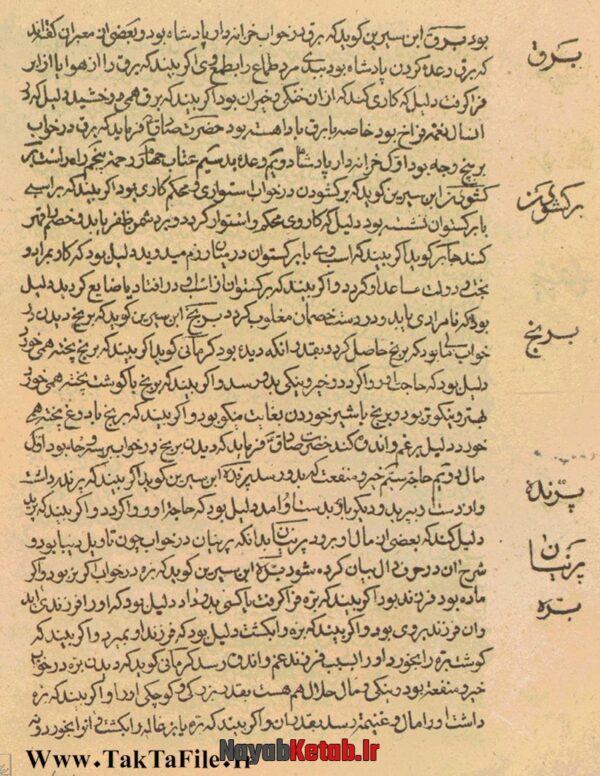 بود برق ابن سیرین کوید که برق در خواب خزانه دار پادشاه بود و بعضی از معبران کفته اند
که برق وعده کردن پادشاه بود بیننده مرد طماع را بطمع وی اکر بیند که برق را از هوا یا از ابر
فرا کرفت دلیل که کاری کند که از ان خنکی و خیر ان بود اکر بیند که برق همی درخشید دلیل که در
ان سال نعمت فراخ بود خاصه با برق باد اهسته بود حضرت صادق فرماید که برق در خواب
بر پنج وجه بود اول خزانه دار پادشاه دویم وعده بد سیم عتاب چهارم رحمت پنجم راه راست
کشودن ابن سیرین کوید که برکشودن در خواب استواری و محکم کاری بود اکر بیند که بر اسبی
با برکستوان نشسته بود دلیل که کار وی محکم و استوار کردد و بر دشمن ظفر یابد و خصم را قهر
کند جابر کوید اکر بیند که اسب وی با برکستوان در میان رزم میدوید دلیل بود که کار بمراد و
بخت و دولت مساعد او کردد و اکر بیند که برکستوان از اسب وی در افتاد یا ضایع کردید دلیل
بود که نامرادی یابد و در دست خصمان مغلوب کردد برنج ابن سیرین کوید که برنج دیدن در
خواب مالی بود که برنج حاصل کردد بقدر انکه دیده بود کرمانی کوید اکر بیند که برنج پخته همی خورد
دلیل بود که حاجت او روا کردد و خیر و نیکی بدو رسد و اکر بیند که برنج با کوشت پخته همی خورد
بهتر و نیکوتر بود و برنج با شیر خوردن بغایت نیکو بود و اکر بیند که برنج با دوغ پخته همی
خورد دلیل بر غم و اندوه کند حضرت صادق فرماید که دیدن برنج در خواب بر سه وجه بود اول
مال دویم حاجت سیم خیر و منفعت که بدو رسد پرنده ابن سیرین کوید اکر بیند که پرنده داشت
و از دست او بپرید و دیکر باره بدست او امد دلیل بود که حاجت او روا کردد و اکر بیند که
دلیل کند که بعضی از مال او برود پرنیان بدانکه پرنیان در خواب چون تاویل دیبا بود و
شرح ان در حرف دال بیان کرده شود بره ابن سیرین کوید که بره در خواب اکر نر بود و اکر
ماده بود فرزند بود اکر بیند که بره فرا کرفت یا کسی بدو داد دلیل بود که او را فرزندی اید
و ان فرزند بروی بود و اکر بیند که بره را بکشت دلیل بود که فرزند او بمیرد و اکر بیند که
کوشت بره را بخورد او را بسبب فرزند غم و اندوه رسد کرمانی کوید که دیدن بره در خواب
خیر و منفعت بود و نیکی و مال حلال هم هست بقدر بزرکی و کوچکی او و اکر بیند که بره
داشت او را مال و غنیمت رسد بقدر ان و اکر بیند که بره یا بزغاله را بکشت نه از بهر خوردن
برق
برکشودن
برنج
پرنده
پرنیان
بره
Www.TakTaFile.Ir
NayabKetab.Ir